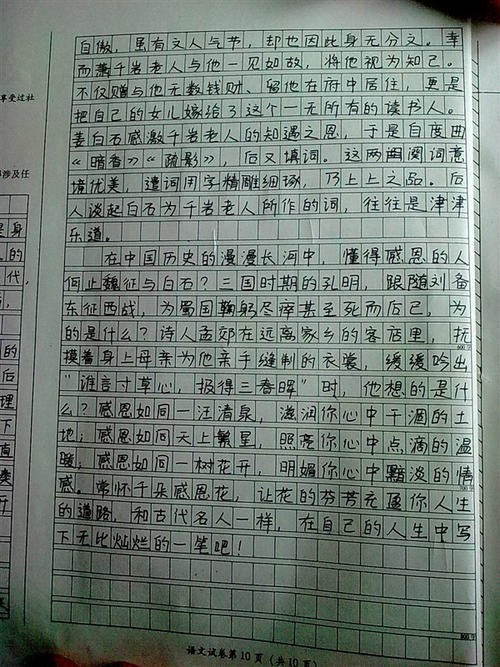 自傲，虽有文人气节，却也因此身无分文。幸
而萧千岩老人与他一见如故，将他视为知己。
不仅赠与他无数钱财、留他在府中居住，更是
把自己的女儿嫁给了这个一无所有的读书人。
姜白石感激千岩老人的知遇之恩，于是自度曲
《暗香》《疏影》，后又填词。这两阕词意
境优美，遣词用字精雕细琢，乃上上之品。后
人谈起白石为千岩老人所作的词，往往是津津
乐道。
在中国历史的漫漫长河中，懂得感恩的人
何止魏征与白石？三国时期的孔明，跟随刘备
东征西战，为蜀国鞠躬尽瘁甚至死而后已，为
的是什么？诗人孟郊在远离家乡的客店里，抚
摸着身上母亲为他亲手缝制的衣裳，缓缓吟出
“谁言寸草心，报得三春晖”时，他想的是什
么？感恩如同一汪清泉，滋润你心中干涸的土
地；感恩如同天上繁星，照亮你心中点滴的温
暖；感恩如同一树花开，明媚你心中黯淡的情
感。常怀千朵感恩花，让花的芬芳充盈你人生
的道路，和古代名人一样，在自己的人生中写
下无比灿烂的一笔吧！
600字
700字
800字
语文试卷第10页（共10页）
享受过社
涉及任
是身
的
代，
的
后
理
下
直
卖
开